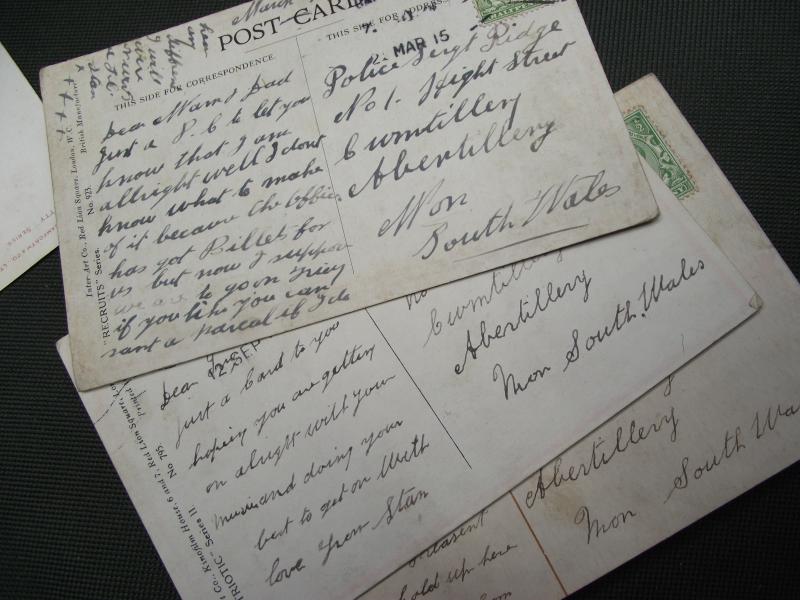 March
POST CARD
THIS SIDE FOR CORRESPONDENCE.
THIS SIDE FOR ADDRESS.
MAR 15
Dear Mam & Dad
just a P.C to let you
know that I am
allright well I dont
know what to make
of it because the Office
has got Billets for
us but now I suppose
we are to go on
if you like you can
sant a parcal if I do
Police Sergt Ridge
No 1. Hight Street
Cwmtillery
Abertillery
Mon
South Wales
Inter-Art Co., Red Lion Square, London, W.C.
British Manufacture
"RECRUITS" Series. No. 923.
12 SEP
Dear
just a Card to you
hoping you are getting
on alright with your
music and doing your
best to get on With
love from Stan
Cwmtillery
Abertillery
Mon South Wales
Co., Kinofilm House, 6 and 7, Red Lion Square, Lo
TRIOTIC" Series II. No. 795. Printed
Abertillery
Mon South Wa
hold up here
SERIES